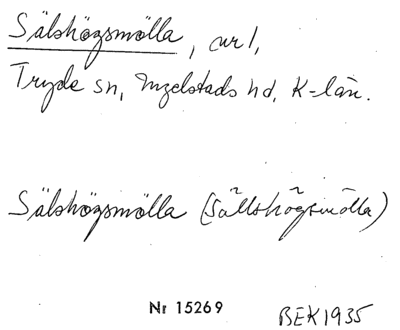 Sälshögsmölla, avs.,
Tryde sn, Ingelstads hd, K-län.
Sälshögsmölla (Sällshögsmölla)
Nr 15269
BEK 1935